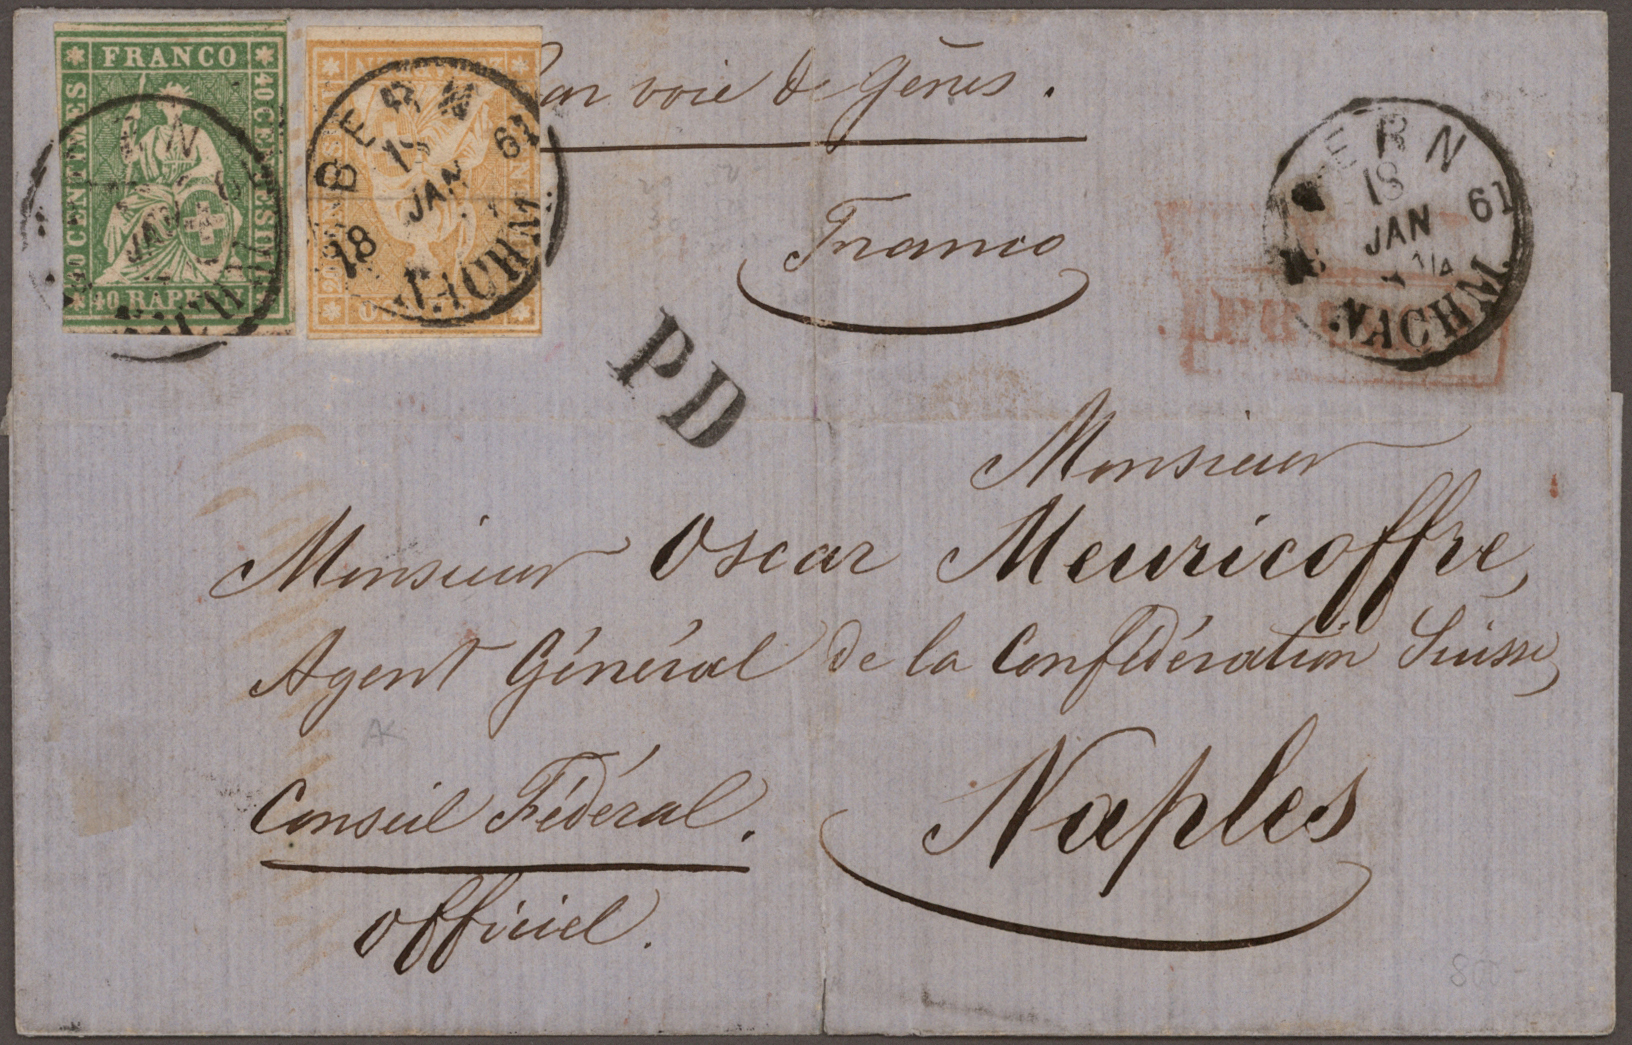 FRANCO
40 CENTIMES
40 CENTESIMI
40 RAPPEN
BERN
18 JAN 61
NACHM.
par voie de Gênes.
Franco
BERN
18 JAN 61
NACHM.
PD
Monsieur
Monsieur Oscar Meuricoffre,
Agent Général de la Confédération Suisse,
Naples
Conseil Fédéral.
Officiel.